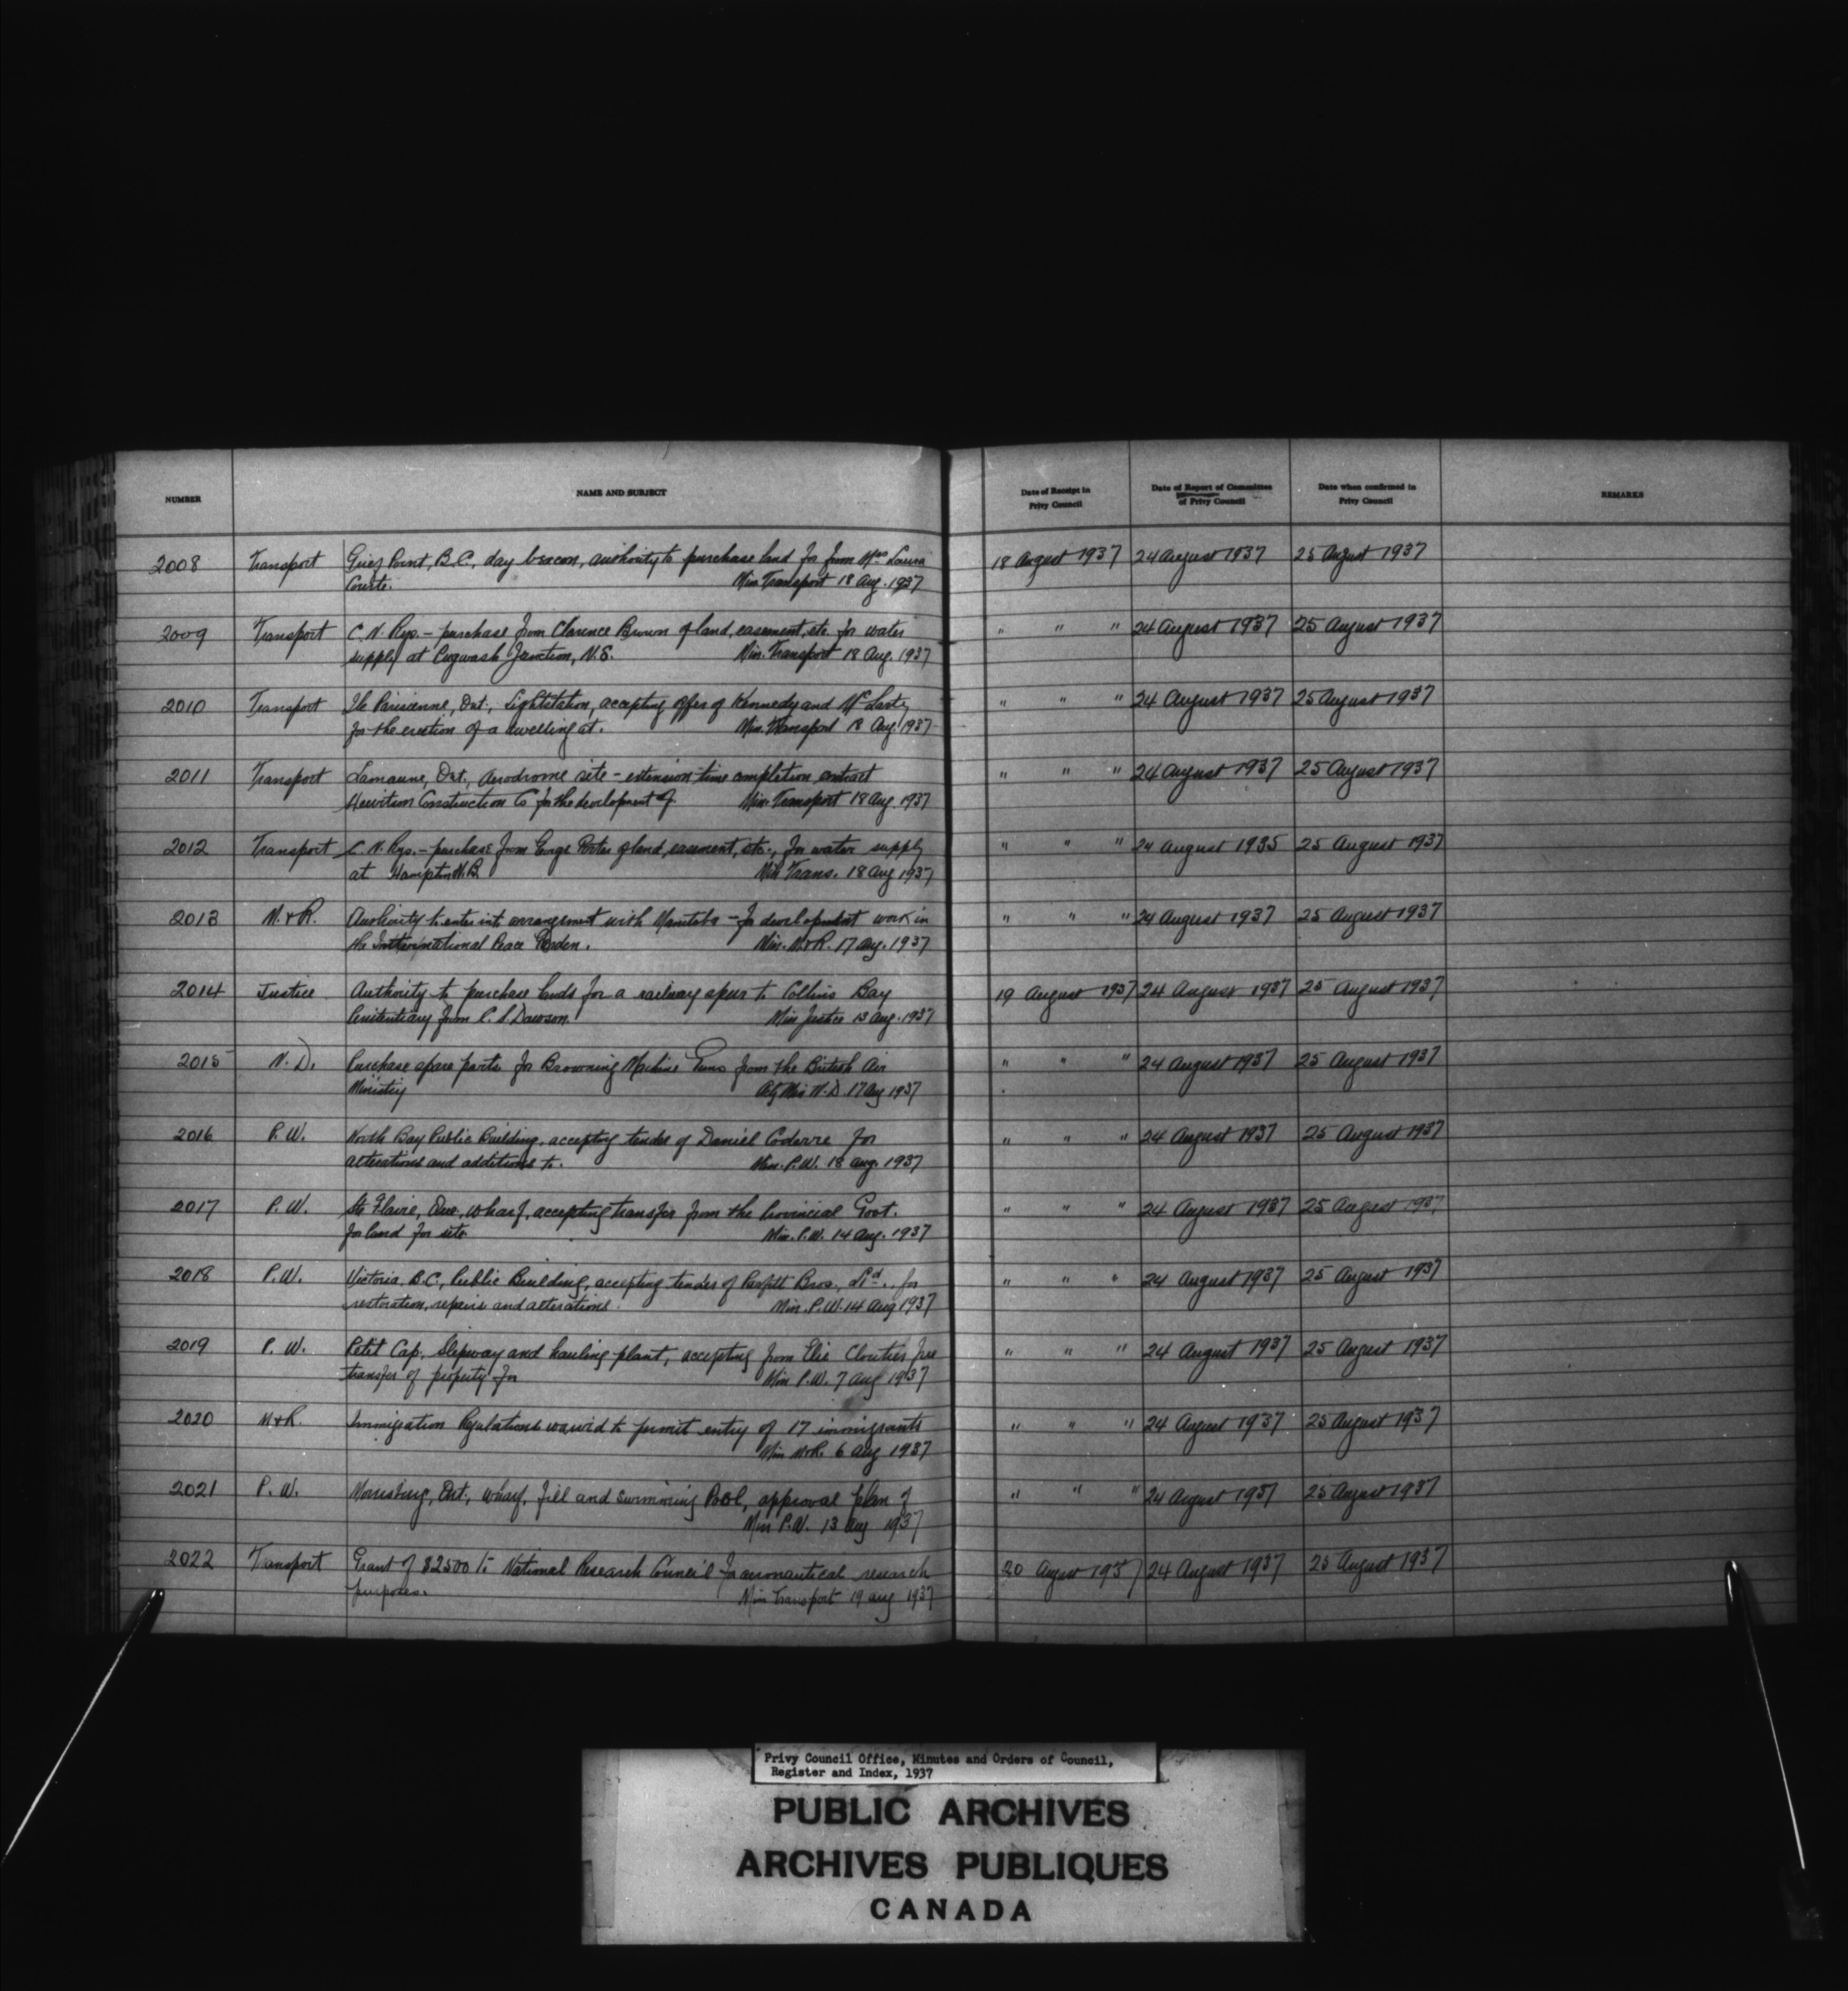 NUMBER NAME AND SUBJECT Date of Receipt in Privy Council Date of Report of Committee of Privy Council Date when confirmed in Privy Council REMARKS
2008 Transport Grief Point, B.C., day beacon, authority to purchase land for from Mrs Laura 18 August 1937 24 August 1937 25 August 1937
Courte. Min. Transport 18 Aug. 1937
2009 Transport C.N. Rys. - purchase from Clarence Brown of land, easement, etc. for water " " " 24 August 1937 25 August 1937
supply at Pugwash Junction, N.S. Min. Transport 18 Aug. 1937
2010 Transport Ile Parisienne, Ont., Lightstation, accepting offer of Kennedy and " " " 24 August 1937 25 August 1937
for the erection of a dwelling at. Min. Transport 18 Aug. 1937
2011 Transport Ont., Aerodrome site - extension time completion contract " " " 24 August 1937 25 August 1937
Hewitson Construction Co for the development of. Min. Transport 18 Aug. 1937
2012 Transport C.N. Rys. - purchase from George Porter of land, easement, etc., for water supply " " " 24 August 1935 25 August 1937
at Hampton N.B. Min. Trans. 18 Aug 1937
2013 M. & R. Authority to enter into arrangement with Manitoba - for development work in " " " 24 August 1937 25 August 1937
the International Peace Garden. Min. M&R. 17 Aug. 1937
2014 Justice Authority to purchase lands for a railway spur to Collins Bay 19 August 1937 24 August 1937 25 August 1937
Penitentiary from C. S. Dawson. Min Justice 13 Aug. 1937
2015 N. D. Purchase spare parts for Browning Machine Guns from the British Air " " " 24 August 1937 25 August 1937
Ministry Actg Min N.D. 17 Aug 1937
2016 P. W. North Bay Public Building, accepting tender of Daniel Coderre for " " " 24 August 1937 25 August 1937
alterations and additions to. Min. P.W. 18 Aug. 1937
2017 P. W. Ste Flavie, Que., wharf, accepting transfer from the Provincial Govt. " " " 24 August 1937 25 August 1937
for land for site Min. P.W. 14 Aug. 1937
2018 P.W. Victoria, B.C., Public Building, accepting tender of Parfitt Bros., Ltd., for " " " 24 August 1937 25 August 1937
restoration, repairs and alterations. Min. P.W. 14 Aug 1937
2019 P. W. Petit Cap, Slipway and hauling plant, accepting from Elie Cloutier free " " " 24 August 1937 25 August 1937
transfer of property for Min P.W. 7 Aug 1937
2020 M&R. Immigration Regulations waived to permit entry of 17 immigrants " " " 24 August 1937 25 August 1937
Min M&R. 6 Aug 1937
2021 P. W. Morrisburg, Ont., wharf, fill and swimming Pool, approval plan of " " " 24 August 1937 25 August 1937
Min P.W. 13 Aug 1937
2022 Transport Grant of $2500 to National Research Council for aeronautical research 20 August 1937 24 August 1937 25 August 1937
purposes. Min Transport 19 Aug 1937
Privy Council Office, Minutes and Orders of Council,
Register and Index, 1937
PUBLIC ARCHIVES
ARCHIVES PUBLIQUES
CANADA